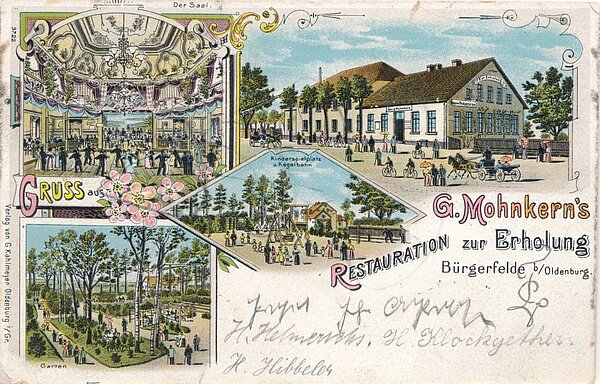 Der Saal.
3722
Gruss aus
Kinderspielplatz
u. Kegelbahn
G. Mohnkern's
Restauration zur Erholung
Bürgerfelde b/Oldenburg.
Verlag von G. Kahlmeyer Oldenburg i/Gr.
Garten
H. Helmerichs. H. Klockgether.
H. Hibbeler